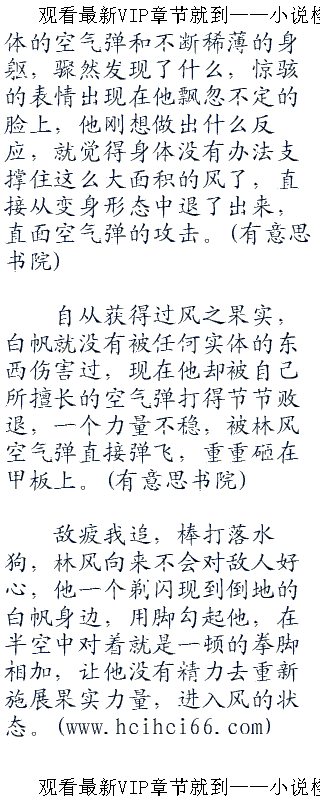 观看最新VIP章节就到——小说检
体的空气弹和不断稀薄的身
躯，骤然发现了什么，惊骇
的表情出现在他飘忽不定的
脸上，他刚想做出什么反
应，就觉得身体没有办法支
撑住这么大面积的风了，直
接从变身形态中退了出来，
直面空气弹的攻击。(有意思
书院)
自从获得过风之果实，
白帆就没有被任何实体的东
西伤害过，现在他却被自己
所擅长的空气弹打得节节败
退，一个力量不稳，被林风
空气弹直接弹飞，重重砸在
甲板上。(有意思书院)
敌疲我追，棒打落水
狗，林风向来不会对敌人好
心，他一个剃闪现到倒地的
白帆身边，用脚勾起他，在
半空中对着就是一顿的拳脚
相加，让他没有精力去重新
施展果实力量，进入风的状
态。(www.hcihci66.com)
观看最新VIP章节就到——小说检